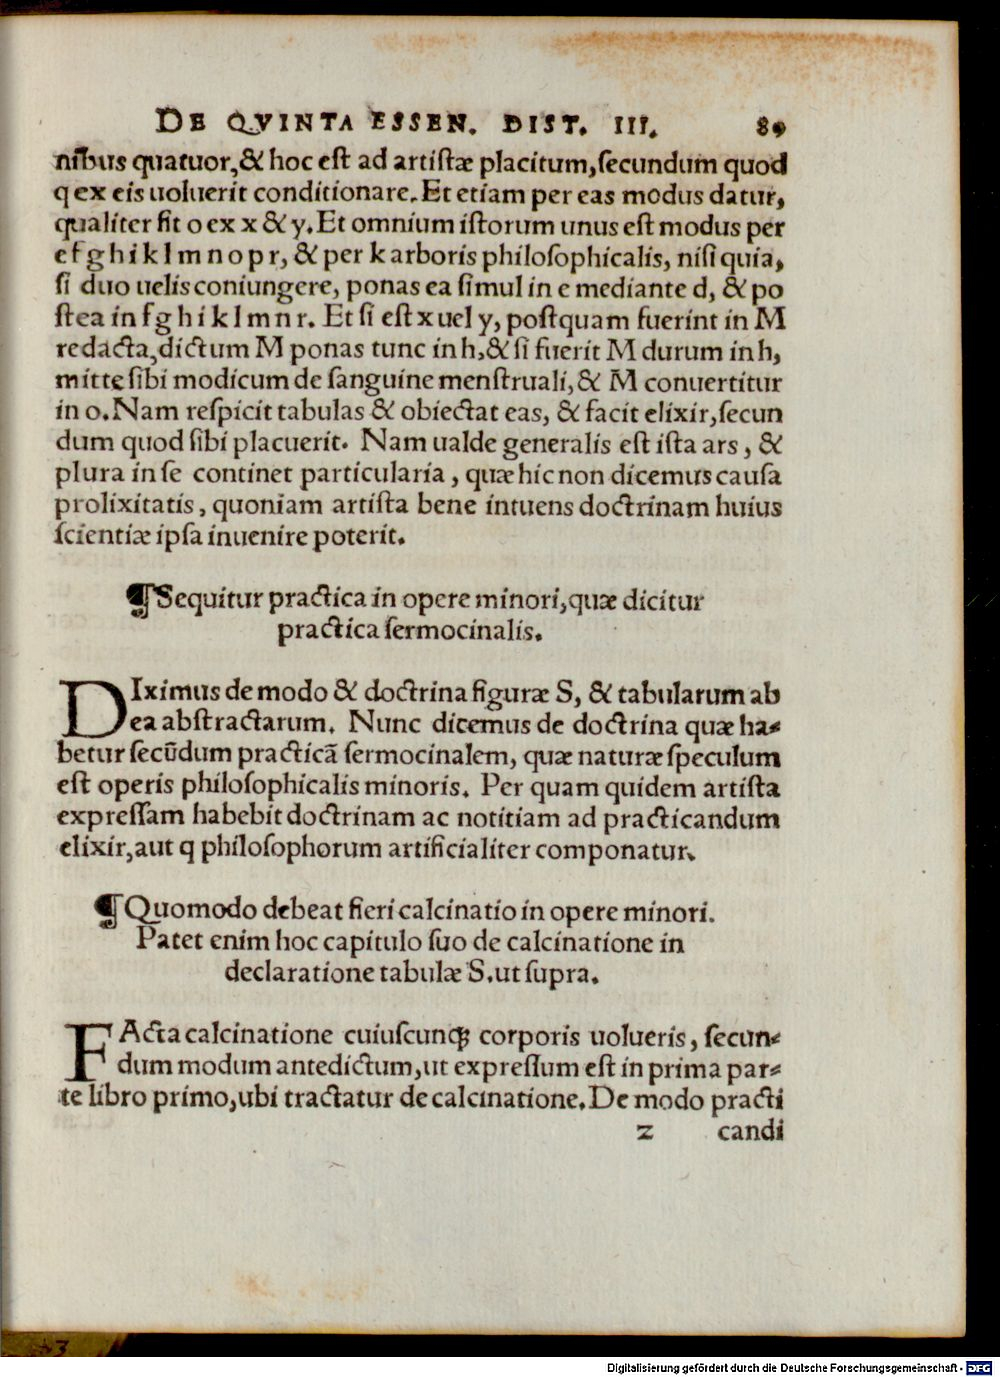 DE QVINTA ESSEN. DIST. III. 89
nibus quatuor, & hoc est ad artistæ placitum, secundum quod
q ex eis uoluerit conditionare. Et etiam per eas modus datur,
qualiter fit o ex x & y. Et omnium istorum unus est modus per
e f g h i k l m n o p r, & per k arboris philosophicalis, nisi quia,
si duo uelis coniungere, ponas ea simul in e mediante d, & po
stea in f g h i k l m n r. Et si est x uel y, postquam fuerint in M
redacta, dictum M ponas tunc in h, & si fuerit M durum in h,
mitte sibi modicum de sanguine menstruali, & M conuertitur
in o. Nam respicit tabulas & obiectat eas, & facit elixir, secun
dum quod sibi placuerit. Nam ualde generalis est ista ars, &
plura in se continet particularia, quæ hic non dicemus causa
prolixitatis, quoniam artista bene intuens doctrinam huius
scientiæ ipsa inuenire poterit.
¶ Sequitur practica in opere minori, quæ dicitur
practica sermocinalis.
DIximus de modo & doctrina figuræ S, & tabularum ab
ea abstractarum. Nunc dicemus de doctrina quæ ha-
betur secũdum practicã sermocinalem, quæ naturæ speculum
est operis philosophicalis minoris. Per quam quidem artista
expressam habebit doctrinam ac notitiam ad practicandum
elixir, aut q philosophorum artificialiter componatur.
¶ Quomodo debeat fieri calcinatio in opere minori.
Patet enim hoc capitulo suo de calcinatione in
declaratione tabulæ S. ut supra.
FActa calcinatione cuiuscunq; corporis uolueris, secun-
dum modum antedictum, ut expressum est in prima par-
te libro primo, ubi tractatur de calcinatione. De modo practi
z candi
Digitalisierung gefördert durch die Deutsche Forschungsgemeinschaft - DFG